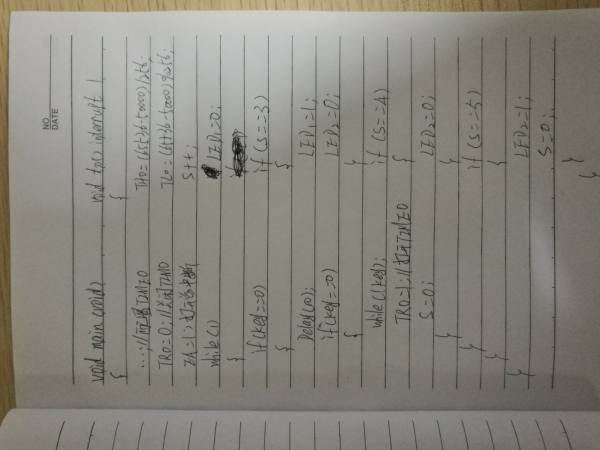 NO.
DATE
void main (void)
{
...; //配置T2定时器0
TR0 = 0; //关闭定时器0
EA = 1; 打开总中断
while(1)
{
if(key==0)
{
Delay(10);
if(key==0)
{
while(!key);
TR0=1; //打开定时器0
S=0;
}
}
}
}
void t0() interrupt 1
{
TH0 = (65536-50000)/256;
TL0 = (65536-50000)%256;
S++;
LED1=0;
if (S==3)
{
LED1=1;
LED2=0;
}
if (S==4)
{
LED2=0;
}
if (S==5)
{
LED2=1;
S=0;
}
}